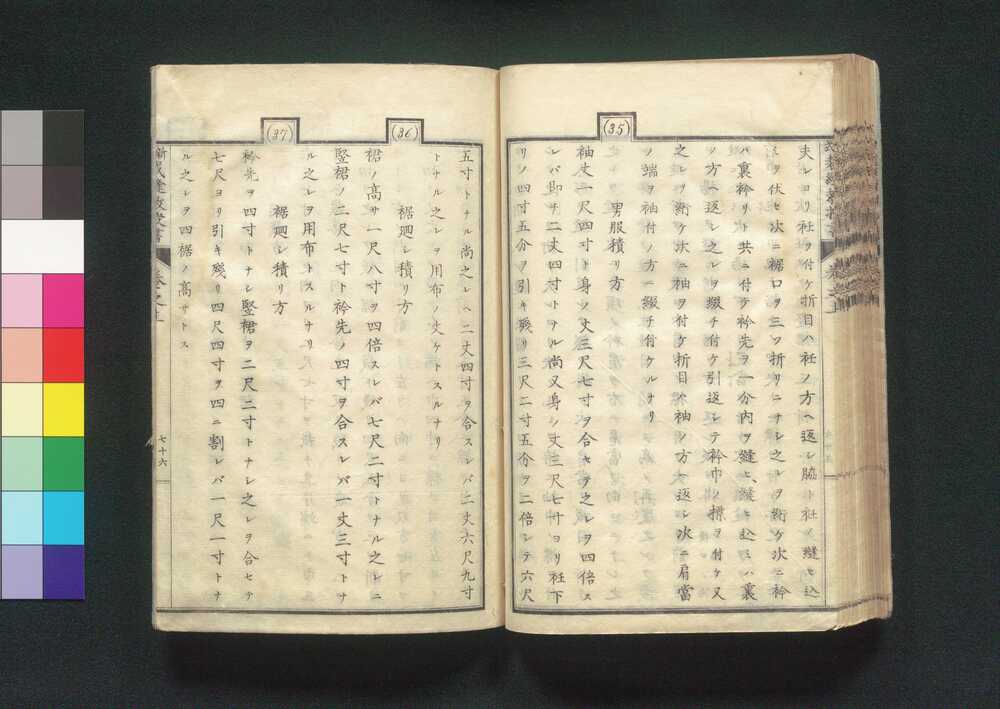 (35)
夫レヨリ衽ヲ付ケ折目ハ衽ノ方ヘ返シ脇ト衽ヲ縫ヒ込
ミヲ伏セ次ニ裾口ヲ三ツ折リニナシ之レヲ絎ケ次ニ衿
ハ裏衿リト共ニ付ケ衿先ヲ一分内ヲ縫ヒ縫ヒ込ミハ裏
ノ方ヘ返シ之レヲ綴チ付ケ引返シテ衿巾ノ標ヲ付ケ又
之レヲ絎ケ次ニ袖ヲ付ケ折目ハ袖ノ方ヘ返シ次ニ肩當
ノ端ヲ袖付ノ方ヘ綴チ付ケルナリ
男服積リ方
袖丈一尺四寸ト身ノ丈三尺七寸ヲ合セ之レヲ四倍ス
レバ即チ二丈四寸トナル尚又身ノ丈三尺七寸ヨリ衽下
リノ四寸五分ヲ引キ残リ三尺二寸五分ヲ二倍シテ六尺
五寸トナル尚之レヘ二丈四寸ヲ合スレバ二丈六尺九寸
トナル之レヲ用布ノ丈ケトスルナリ
(36)
裾廻シ積リ方
裾ノ高サ一尺八寸ヲ四倍スレバ七尺二寸トナル之レニ
竪裾ノ二尺七寸ト衿先ノ四寸ヲ合スレバ一丈三寸トナ
ル之レヲ用布トスルナリ
(37)
裾廻シ積リ方
衿先ヲ四寸トナシ竪裾ヲ二尺二寸トナシ之レヲ合セテ
七尺ヨリ引キ残リ四尺四寸ヲ四ニ割レバ一尺一寸トナ
ル之レヲ四裾ノ高サトス
七十六